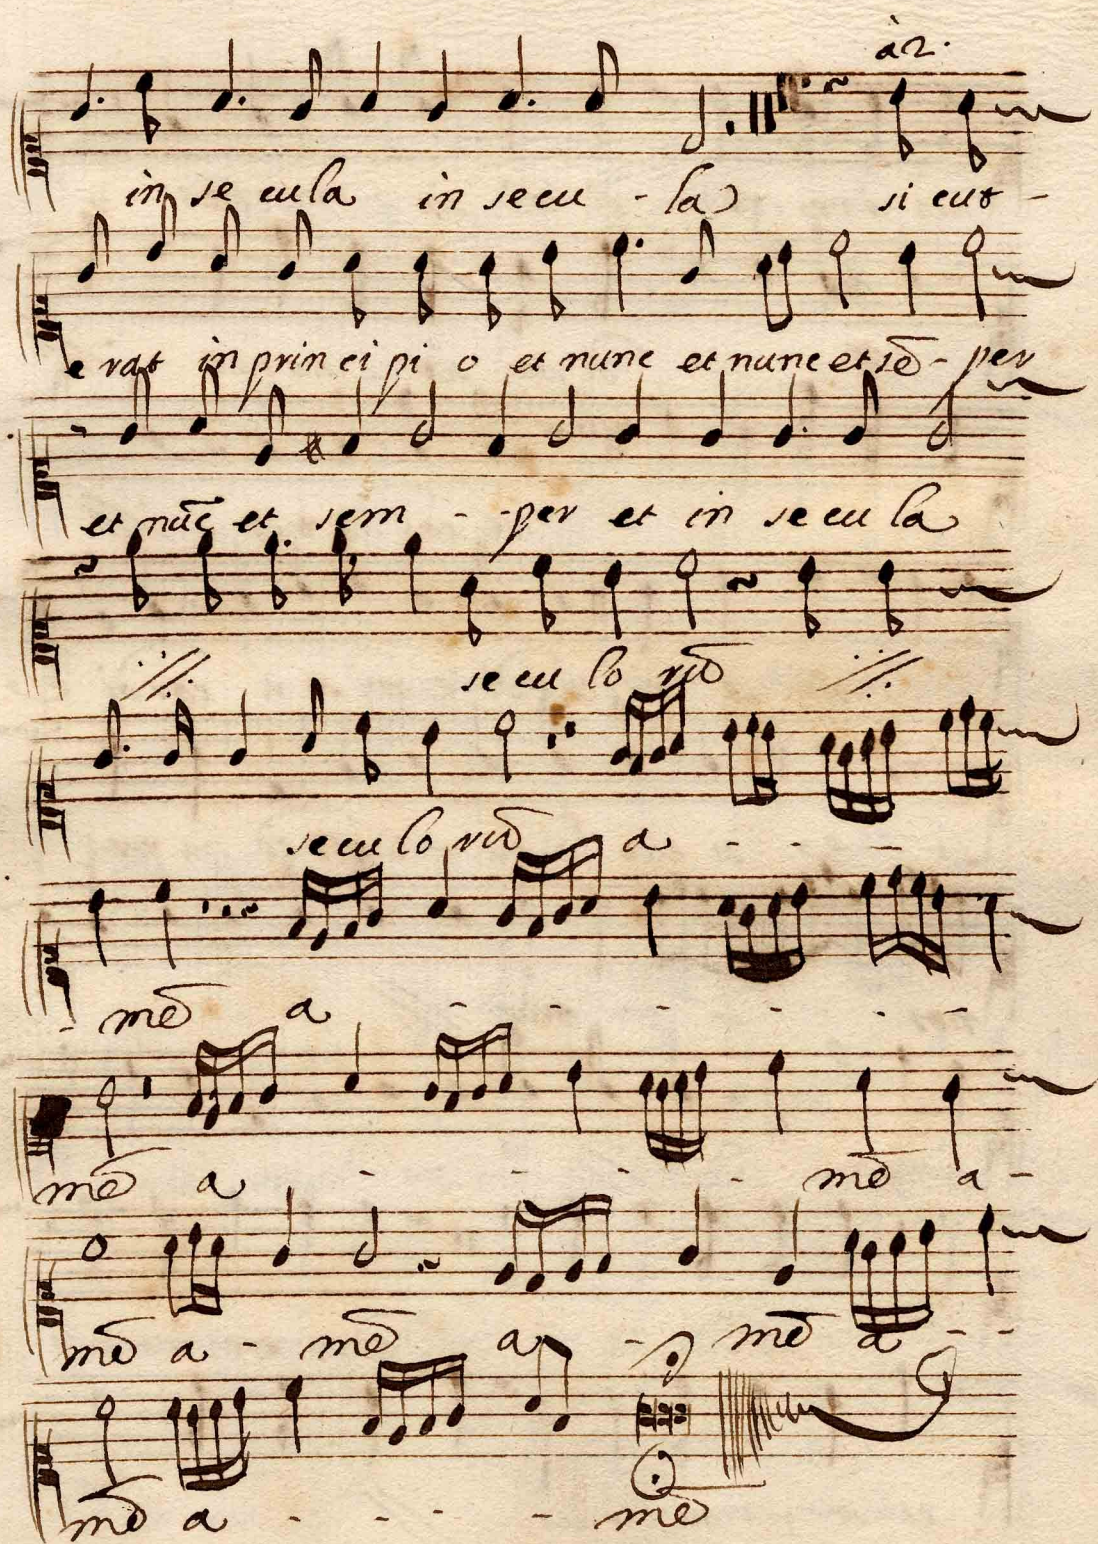 à 2.
in se cula in secu - la si cut -
e rat in prin ci pi o et nunc et nunc et sē - per
et nūc et sem - - per et in se cu la
·//. se cu lo rū ·//.
secu lo rū a - - -
- mē a - - - - - -
mē a - - - - mē a -
mē a - mē a - mē a - -
mē a - - - - mē